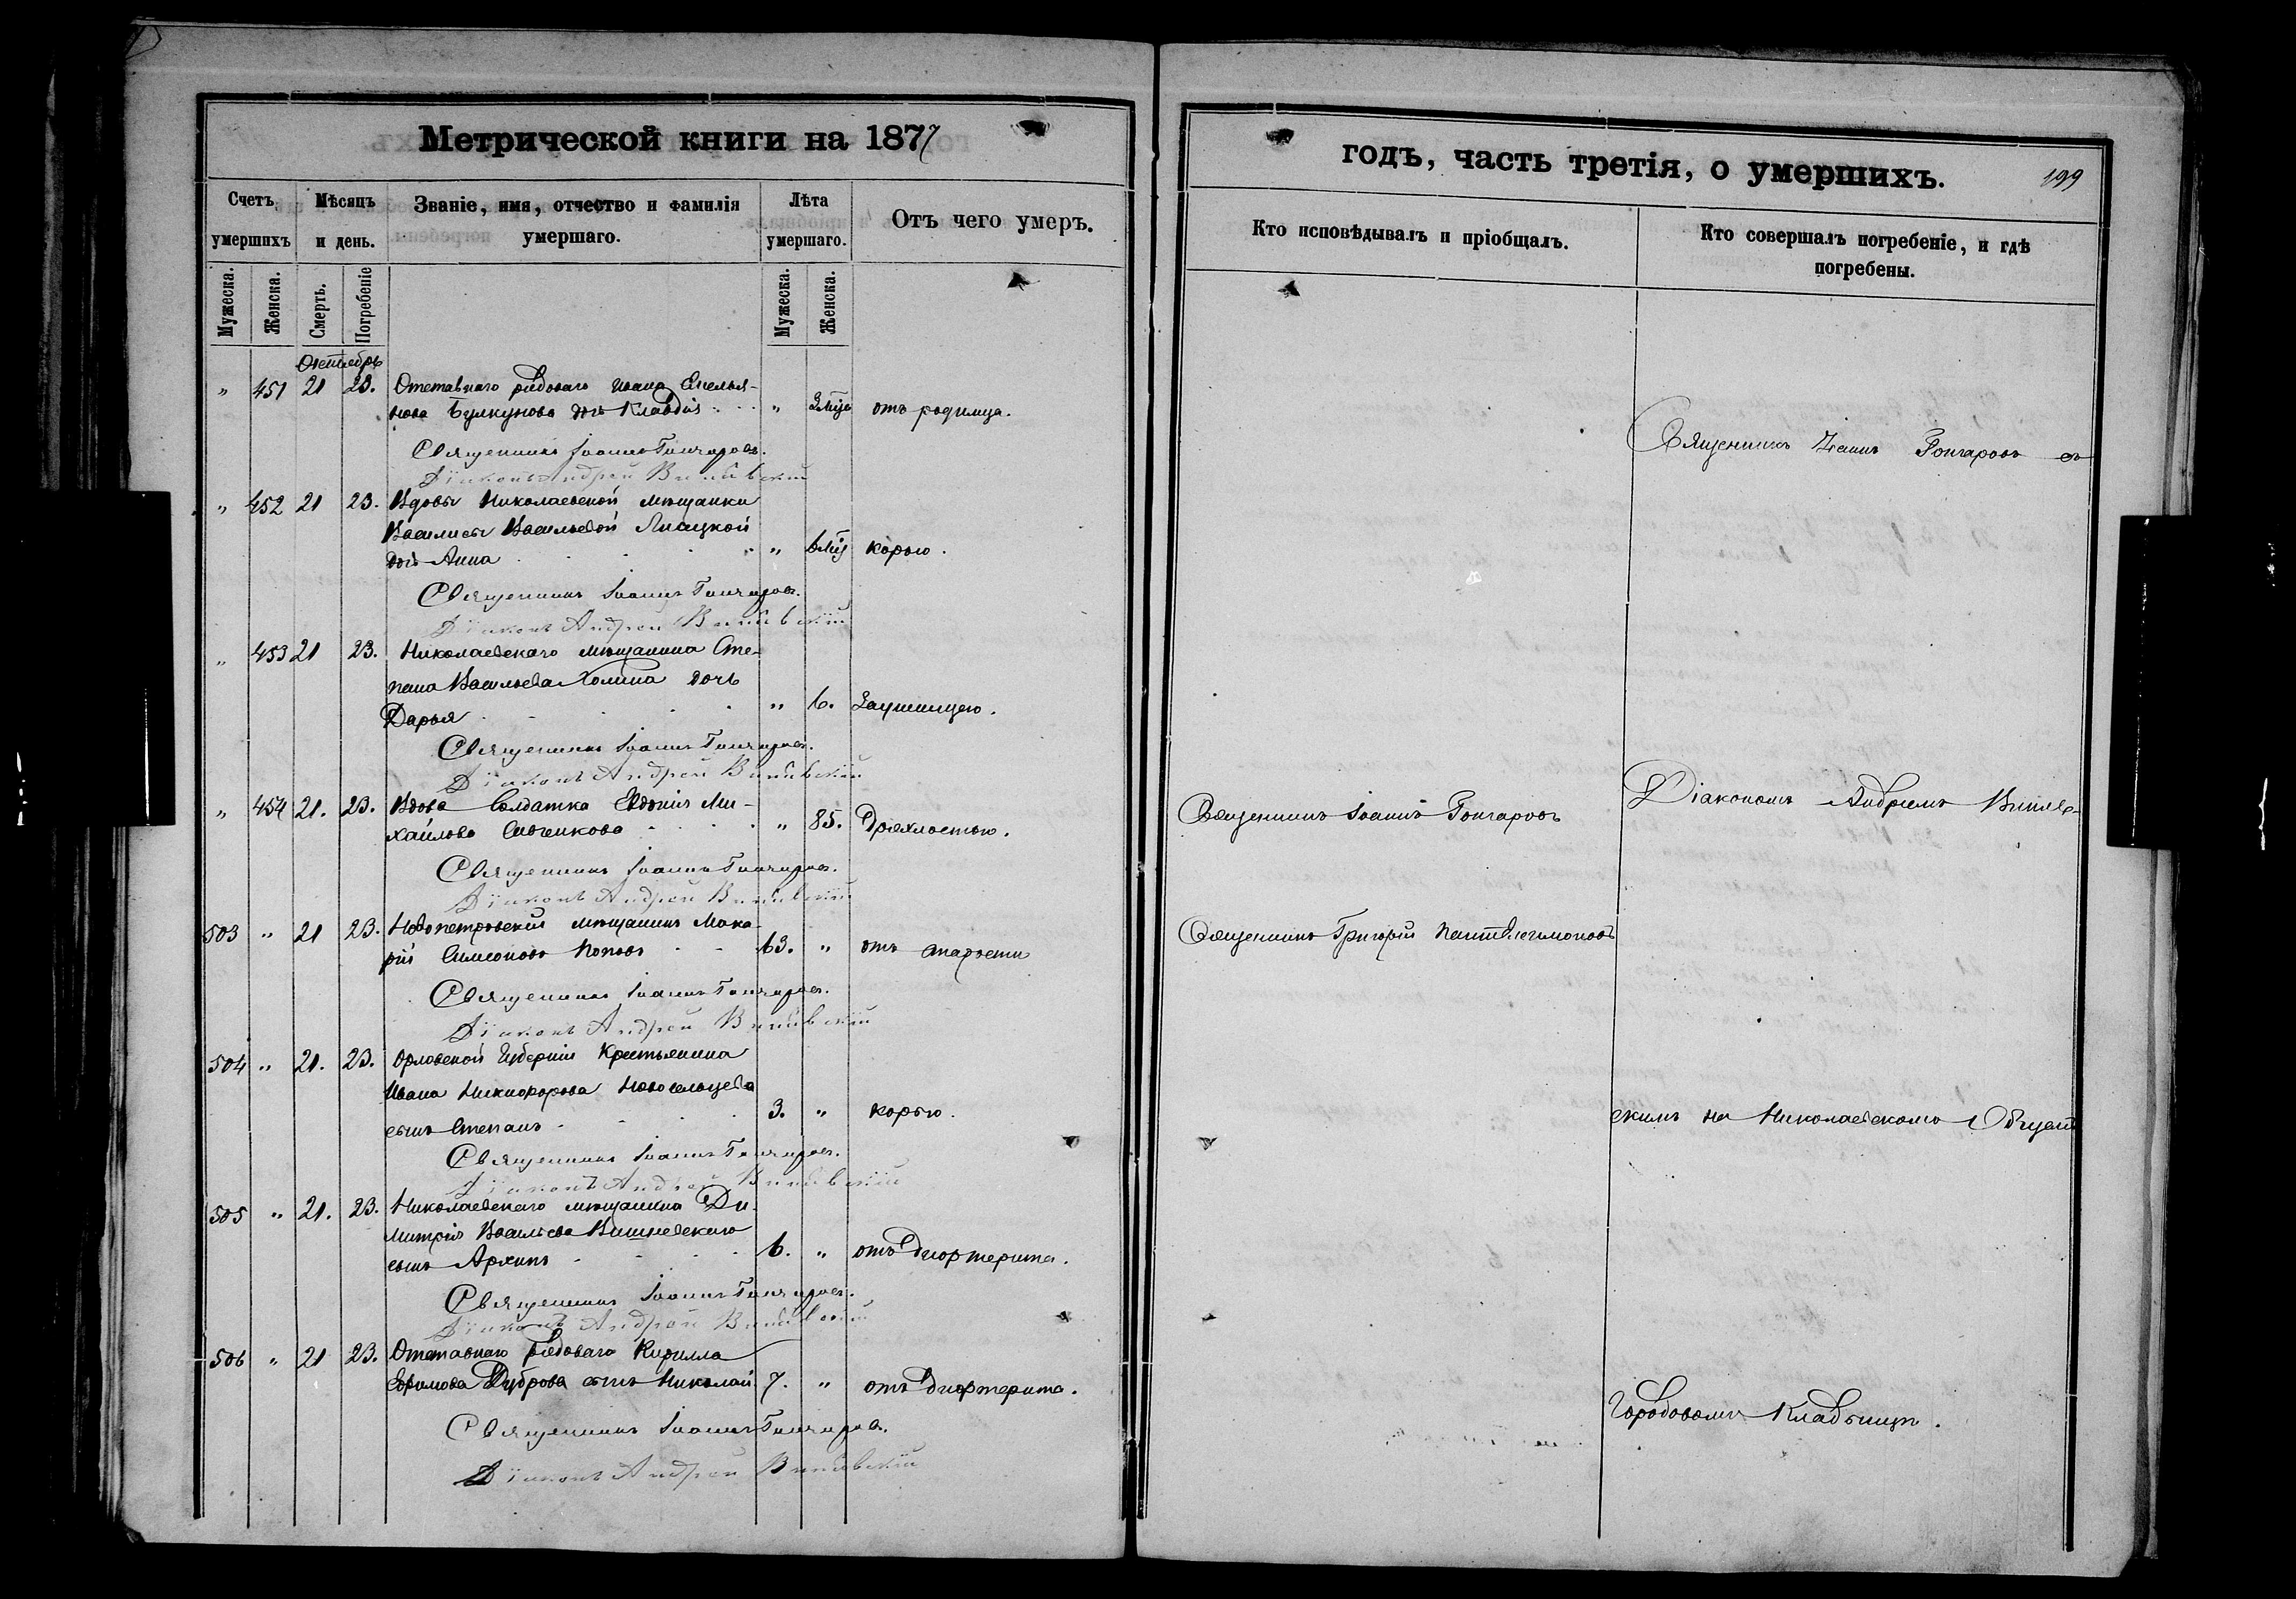 Метрической книги на 1877
Счетъ умершихъ
Мѣсяцъ и день.
Званіе, имя, отчество и фамилія умершаго.
Лѣта умершаго.
Отъ чего умеръ.
Мужеска. Женска. Смерть. Погребеніе Мужеска. Женска.
Октябрь
" 451 21 23. Отставнаго рядоваго Ивана Емелья-
нова Булкунова дочь Клавдія " 3 мѣс отъ родимца.
Священникъ Іоаннъ Гончаровъ.
Діаконъ Андрей
" 452 21 23. Вдовы Николаевской мѣщанки
Василисы Васильевой Лисицкой
дочь Анна " 6 мѣс корью.
Священникъ Іоаннъ Гончаровъ.
Діаконъ Андрей
" 453 21 23. Николаевскаго мѣщанина Сте-
пана Васильева Холина дочь
Дарья " 6. Заушницею.
Священникъ Іоаннъ Гончаровъ.
Діаконъ Андрей
" 454 21. 23. Вдова Солдатка Евдокія Ми-
хайлова " 85. Дряхлостью.
Священникъ Іоаннъ Гончаровъ.
Діаконъ Андрей
503 " 21 23. Новопетровскій мѣщанинъ Мака-
рій Симеоновъ Поповъ 63. " отъ старости
Священникъ Іоаннъ Гончаровъ.
Діаконъ Андрей
504 " 21. 23. Орловской Губерніи Крестьянина
Ивана Никифорова Новосельцева
сынъ Степанъ 3. " корью.
Священникъ Іоаннъ Гончаровъ.
Діаконъ Андрей
505 " 21. 23. Николаевскаго мѣщанина Ди-
митрія Васильева Вишневскаго
сынъ Архипъ 6. " отъ дифтерита.
Священникъ Іоаннъ Гончаровъ.
Діаконъ Андрей
506 " 21 23. Отставнаго рядоваго Кирилла
Ефимова Дуброва сынъ Николай 7. " отъ дифтерита.
Священникъ Іоаннъ Гончаровъ.
Діаконъ Андрей
годъ, часть третія, о умершихъ.
199
Кто исповѣдывалъ и пріобщалъ.
Кто совершалъ погребеніе, и гдѣ погребены.
Священникъ Іоаннъ Гончаровъ съ
Священникъ Іоаннъ Гончаровъ
Діакономъ Андреемъ
Священникъ Григорій Пантелеимоновъ
скимъ на Николаевскомъ Общемъ
Городовомъ Кладбищѣ.